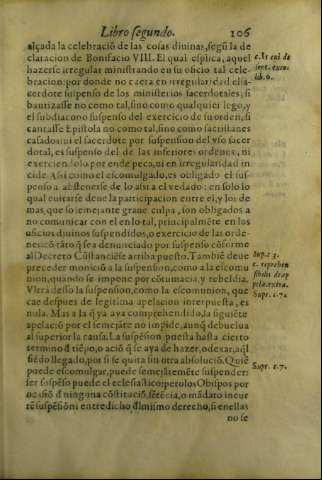 Libro segundo. 106
alçada la celebraciõ de las cosas diuinas, segũ la de
claracion de Bonifacio VIII. El qual esplica, aquel
hazerse irregular ministrando en su oficio tal cele-
bracion: por donde no caera en irregularidad el sa-
cerdote suspenso de los ministerios sacerdotales, si
bautizasse no como tal, sino como qualquier lego, y
el subdiacono suspenso del exercicio de su orden, si
cantasse Epistola no como tal, sino como sacristanes
casados: ni el sacerdote por suspension del vso sacer
dotal, es suspenso del de las inferiores ordenes, ni
exerciendolo por ende peca, ni en irregularidad in
cide. Assi como el escomulgado, es obligado el sus-
penso a abstenerse de lo assi a el vedado: en solo lo
qual euitarse deue la participacion entre el, y los de
mas, que lo intentan graue culpa, son obligados a
no comunicar con el en lo tal, principalmẽte en los
oficios diuinos suspendidos, o exercicio de las orde-
nes: cõ tãto q̃ sea denunciado por suspenso cõforme
al Decreto Cõstanciẽse arriba puesto. Tambiẽ deue
preceder moniciõ a la suspension, como a la escomu
nion, quando se impone por cõtumacia, y rebeldia.
Vlera dessto la suspension, como la escomunion, que
cae despues de legitima apelacion interpuesta, es
nula. Mas a la q̃ ya aya comprehendido, la siguiẽte
apelaciõ por el semejãte no impide, aunq̃ debuelua
al superior la causa. La suspẽsion puesta hasta cierto
termino d̃ tiẽpo, o aciõ q̃ se aya de hazer, o dexar, aql̃
siẽdo llegado, por si se quita sin otra absoluciõ. Quiẽ
puede escomulgar, puede semejãtemẽte suspender:
ser suspẽso puede el eclesiastico: pero los Obispos por
ocasiõ d̃ ninguna cõstituciõ, sẽtẽcia, o mãdato incur
rẽ suspẽsiõ ni entredicho d̃l mismo derecho, si en ellas
no se
lib. 6.
Sup. c. 3.
Supr. c. 7.
Supr. c. 7.